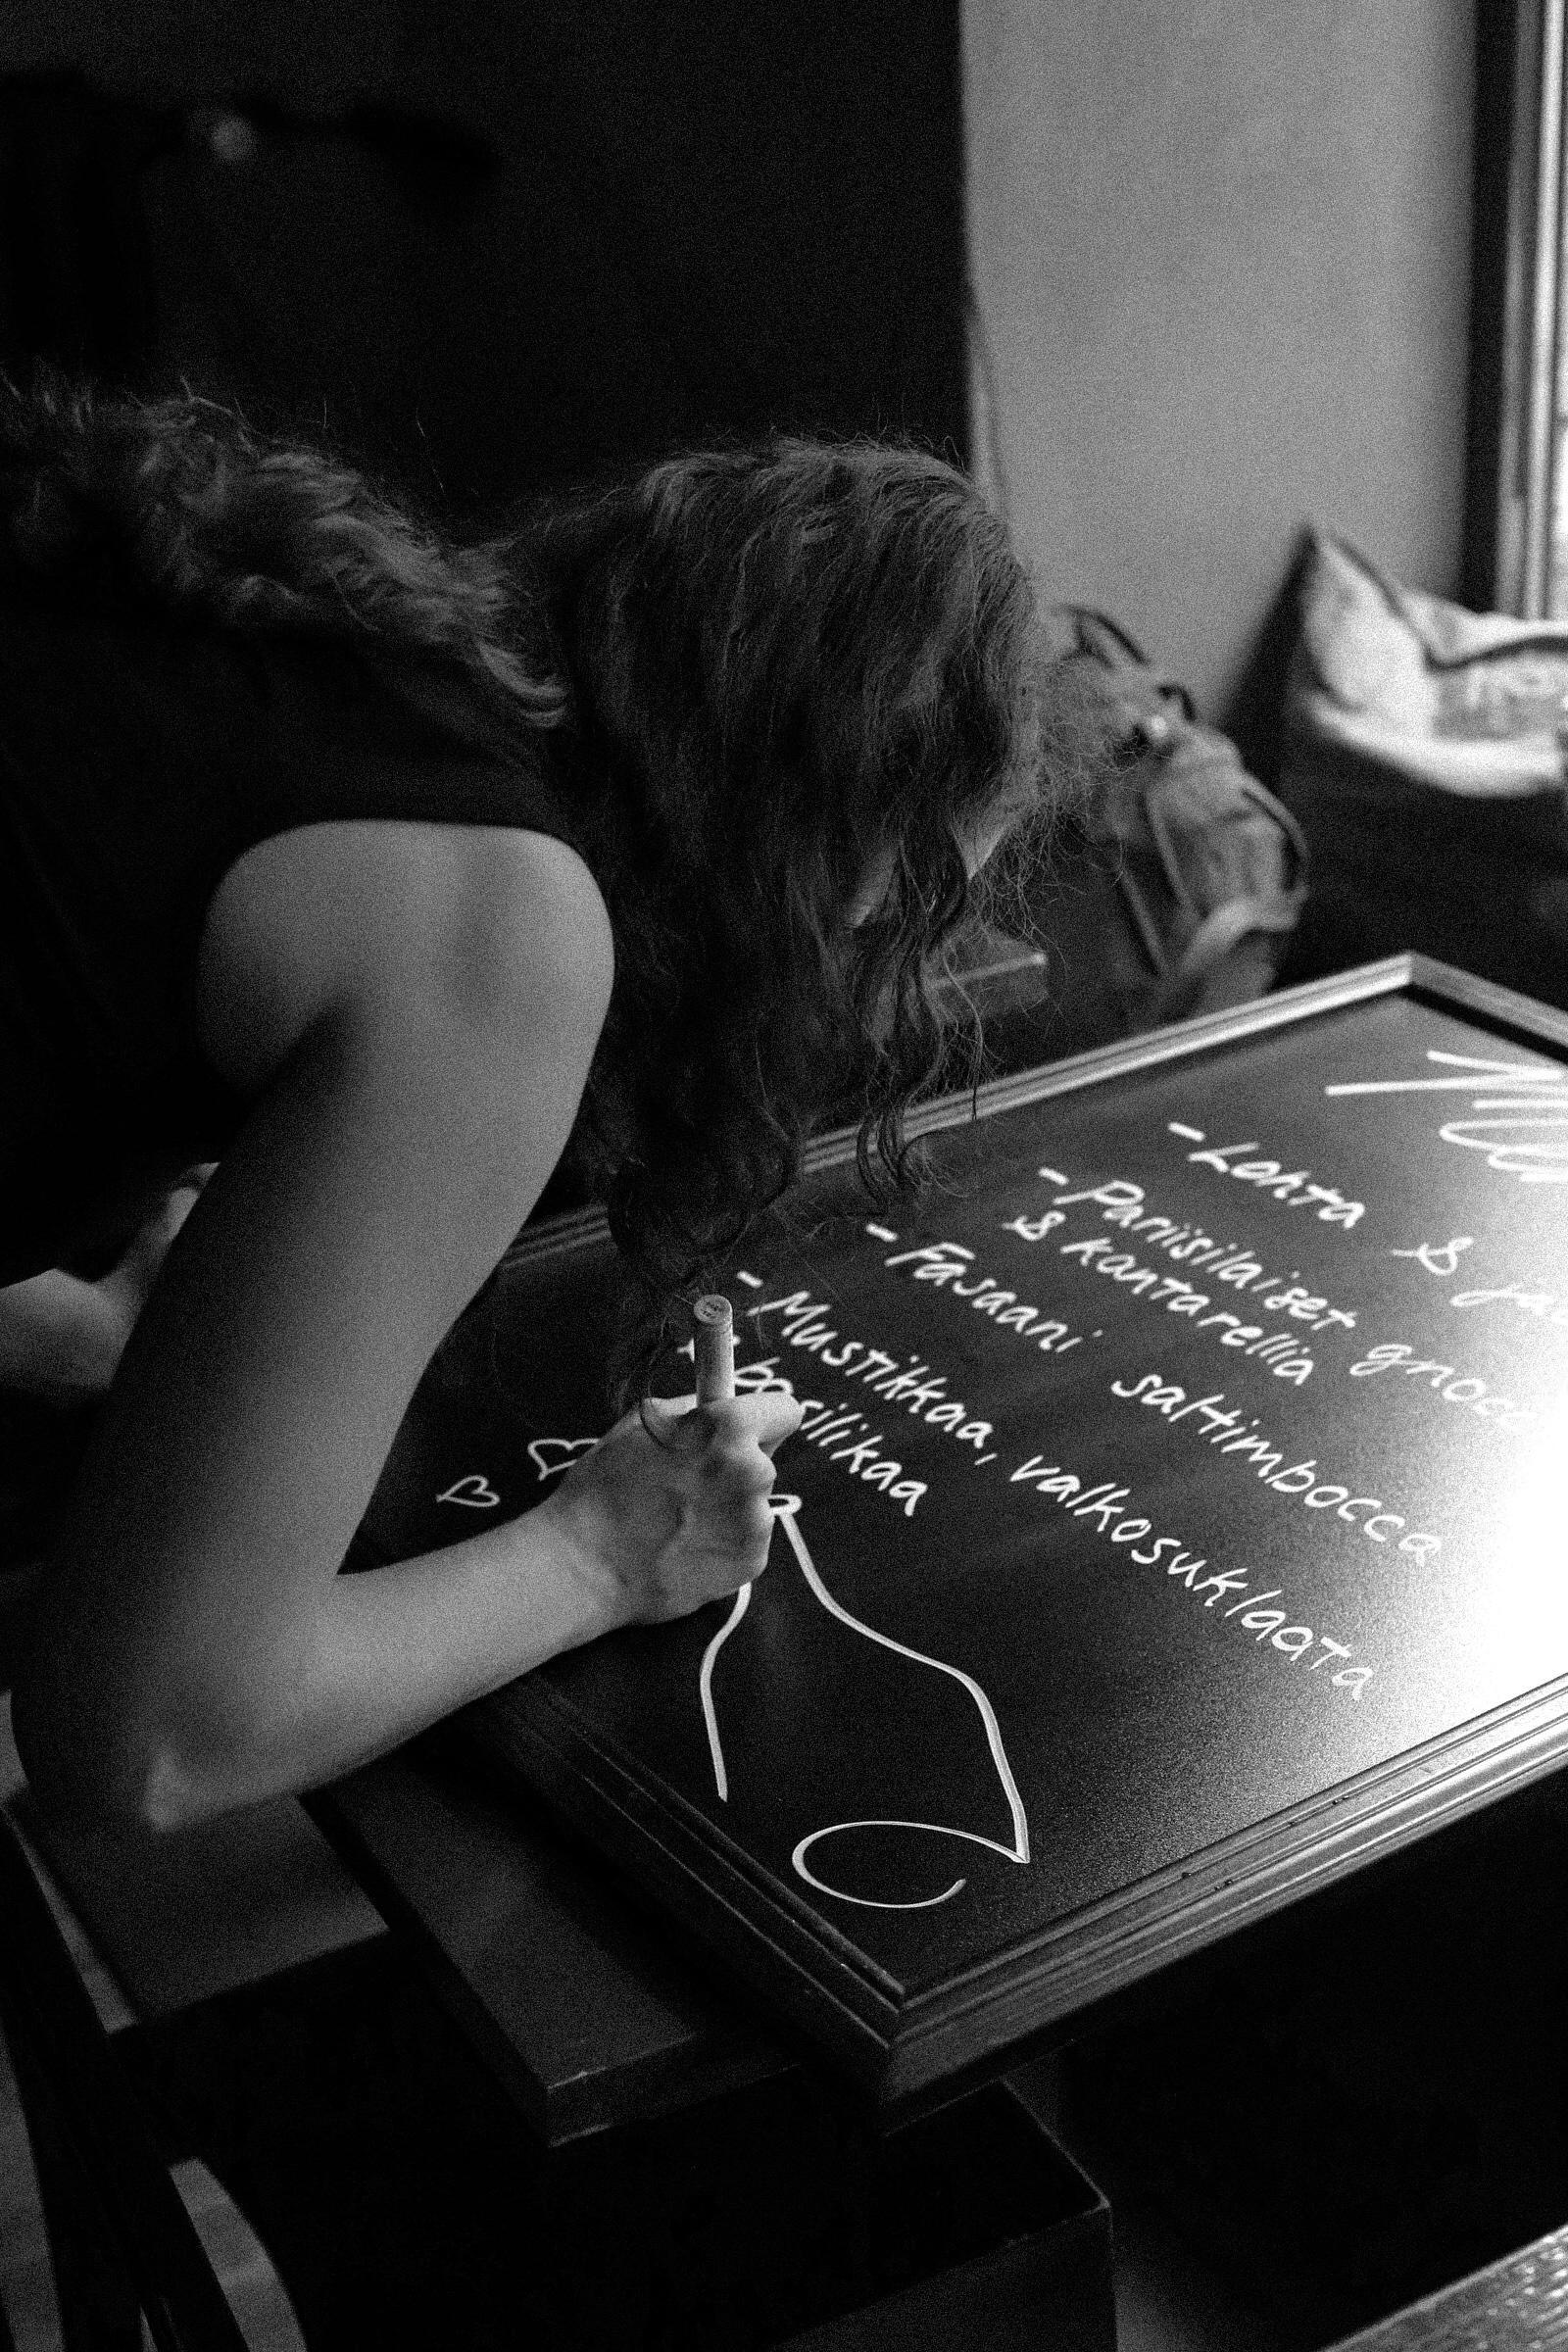 - Lohta &
- Pariisilaiset
& kantarellia
- Fasaani saltimbocca
- Mustikkaa, valkosuklaata
& basilikaa